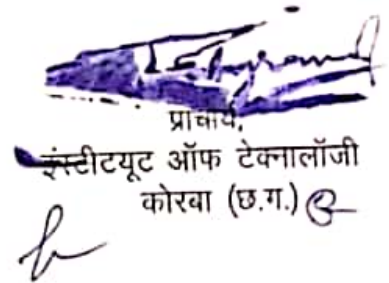 प्राचार्य,
इंस्टीटयूट ऑफ टेक्नालॉजी
कोरबा (छ.ग.)